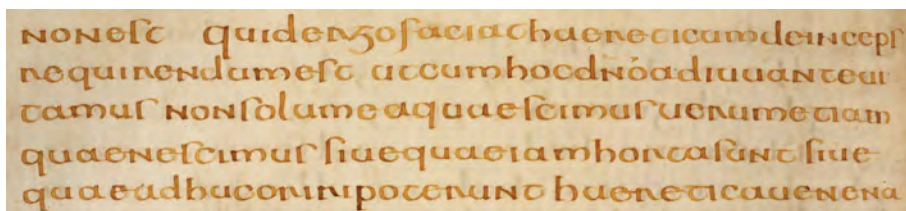 nonest quidergofaciathaereticumdeinceps
requirendumest utcumhocdnoadiuuanteui
tamus nonsolumeaquaescimus uerumetiam
quaenescimus siuequaeiamhortasunt siue
quaeadhucoriripoterunt haereticauenena